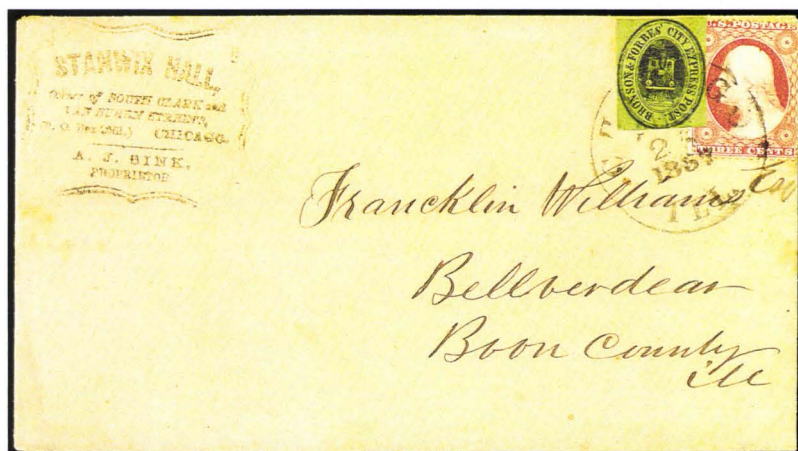 STANWIX HALL,
Corner of SOUTH CLARK and
VAN BUREN STREETS,
CHICAGO.
A. J. SINK,
PROPRIETOR
BRONSON & FORBES' CITY EXPRESS POST.
U.S. POSTAGE
THREE CENTS
2
185
ILL
Francklin Williams
Bellverdear
Boon County
Ill